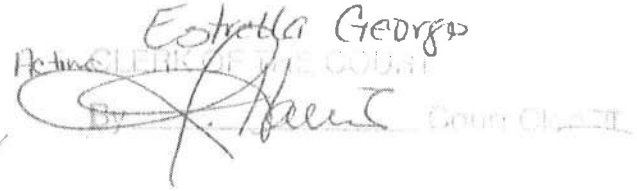 Estrella George
Acting CLERK OF THE COURT
By Court Clerk II